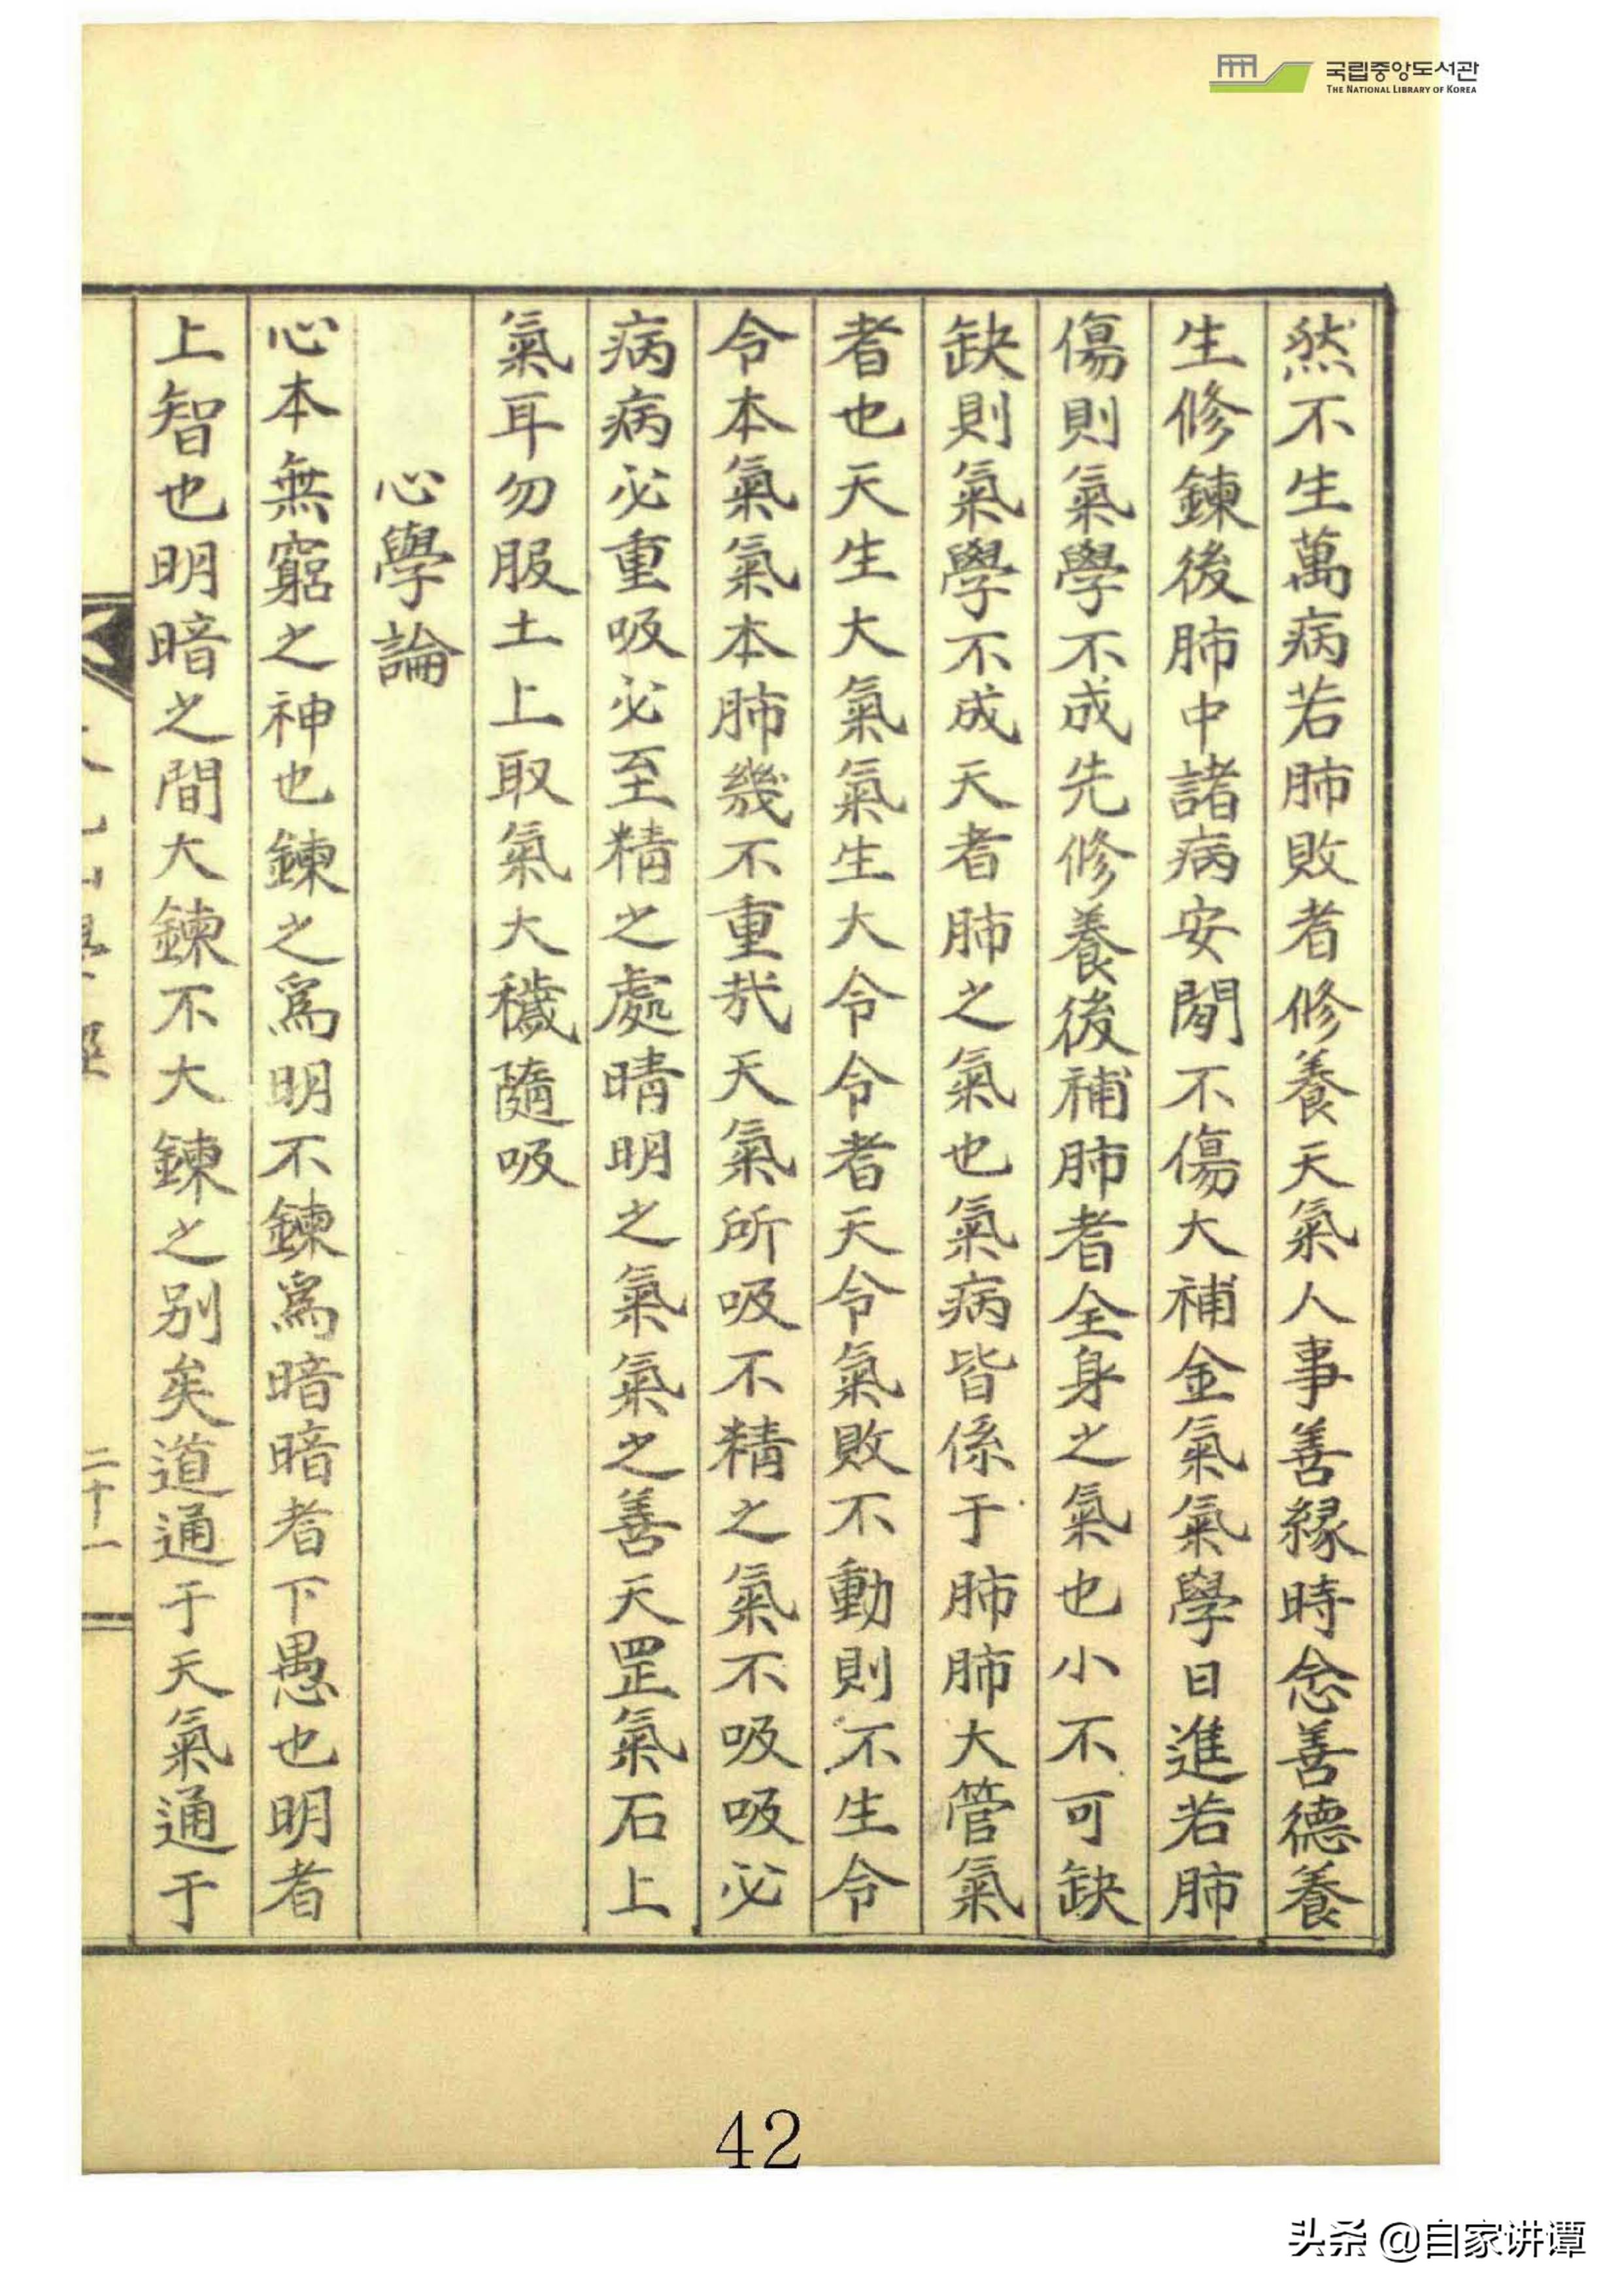 국립중앙도서관
THE NATIONAL LIBRARY OF KOREA
然不生萬病若肺敗者修養天氣人事善緣時念善德養
生修鍊後肺中諸病安閒不傷大補金氣氣學日進若肺
傷則氣學不成先修養後補肺者全身之氣也小不可缺
缺則氣學不成天者肺之氣也氣病皆係于肺肺大管氣
者也天生大氣氣生大令令者天令氣敗不動則不生令
令本氣氣本肺幾不重哉天氣所吸不精之氣不吸吸必
病病必重吸必至精之處晴明之氣氣之善天罡氣石上
氣耳勿服土上取氣大穢隨吸
心學論
心本無窮之神也鍊之爲明不鍊爲暗暗者下愚也明者
上智也明暗之間大鍊不大鍊之別矣道通于天氣通于
二十一
42
头条 @自家讲谭